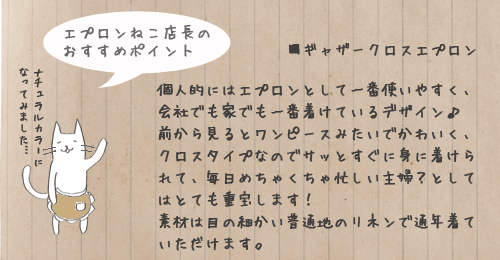 エプロンねこ店長の
おすすめポイント
■ギャザークロスエプロン
ナチュラルカラーに
なってみました…
個人的にはエプロンとして一番使いやすく、
会社でも家でも一番着けているデザイン♪
前から見るとワンピースみたいでかわいく、
クロスタイプなのでサッとすぐに身に着けら
れて、毎日めちゃくちゃ忙しい主婦?として
はとても重宝します!
素材は目の細かい普通地のリネンで通年着て
いただけます。